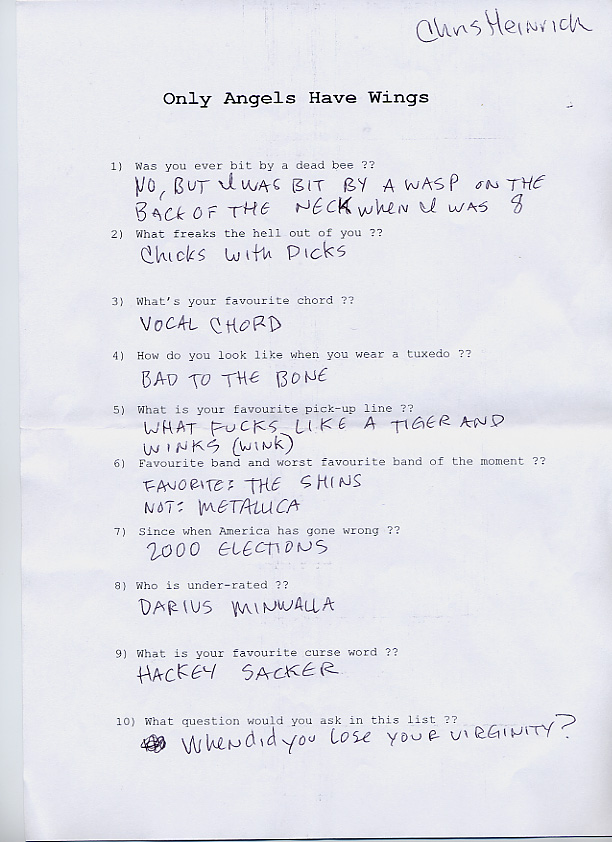 Chris Heinrich
Only Angels Have Wings
1) Was you ever bit by a dead bee ??
NO, BUT I WAS BIT BY A WASP ON THE
BACK OF THE NECK WHEN I WAS 8
2) What freaks the hell out of you ??
CHICKS WITH DICKS
3) What's your favourite chord ??
VOCAL CHORD
4) How do you look like when you wear a tuxedo ??
BAD TO THE BONE
5) What is your favourite pick-up line ??
WHAT FUCKS LIKE A TIGER AND
WINKS (WINK)
6) Favourite band and worst favourite band of the moment ??
FAVORITE: THE SHINS
NOT: METALLICA
7) Since when America has gone wrong ??
2000 ELECTIONS
8) Who is under-rated ??
DARIUS MINWALLA
9) What is your favourite curse word ??
HACKEY SACKER
10) What question would you ask in this list ??
WHEN did you LOSE YOUR VIRGINITY?